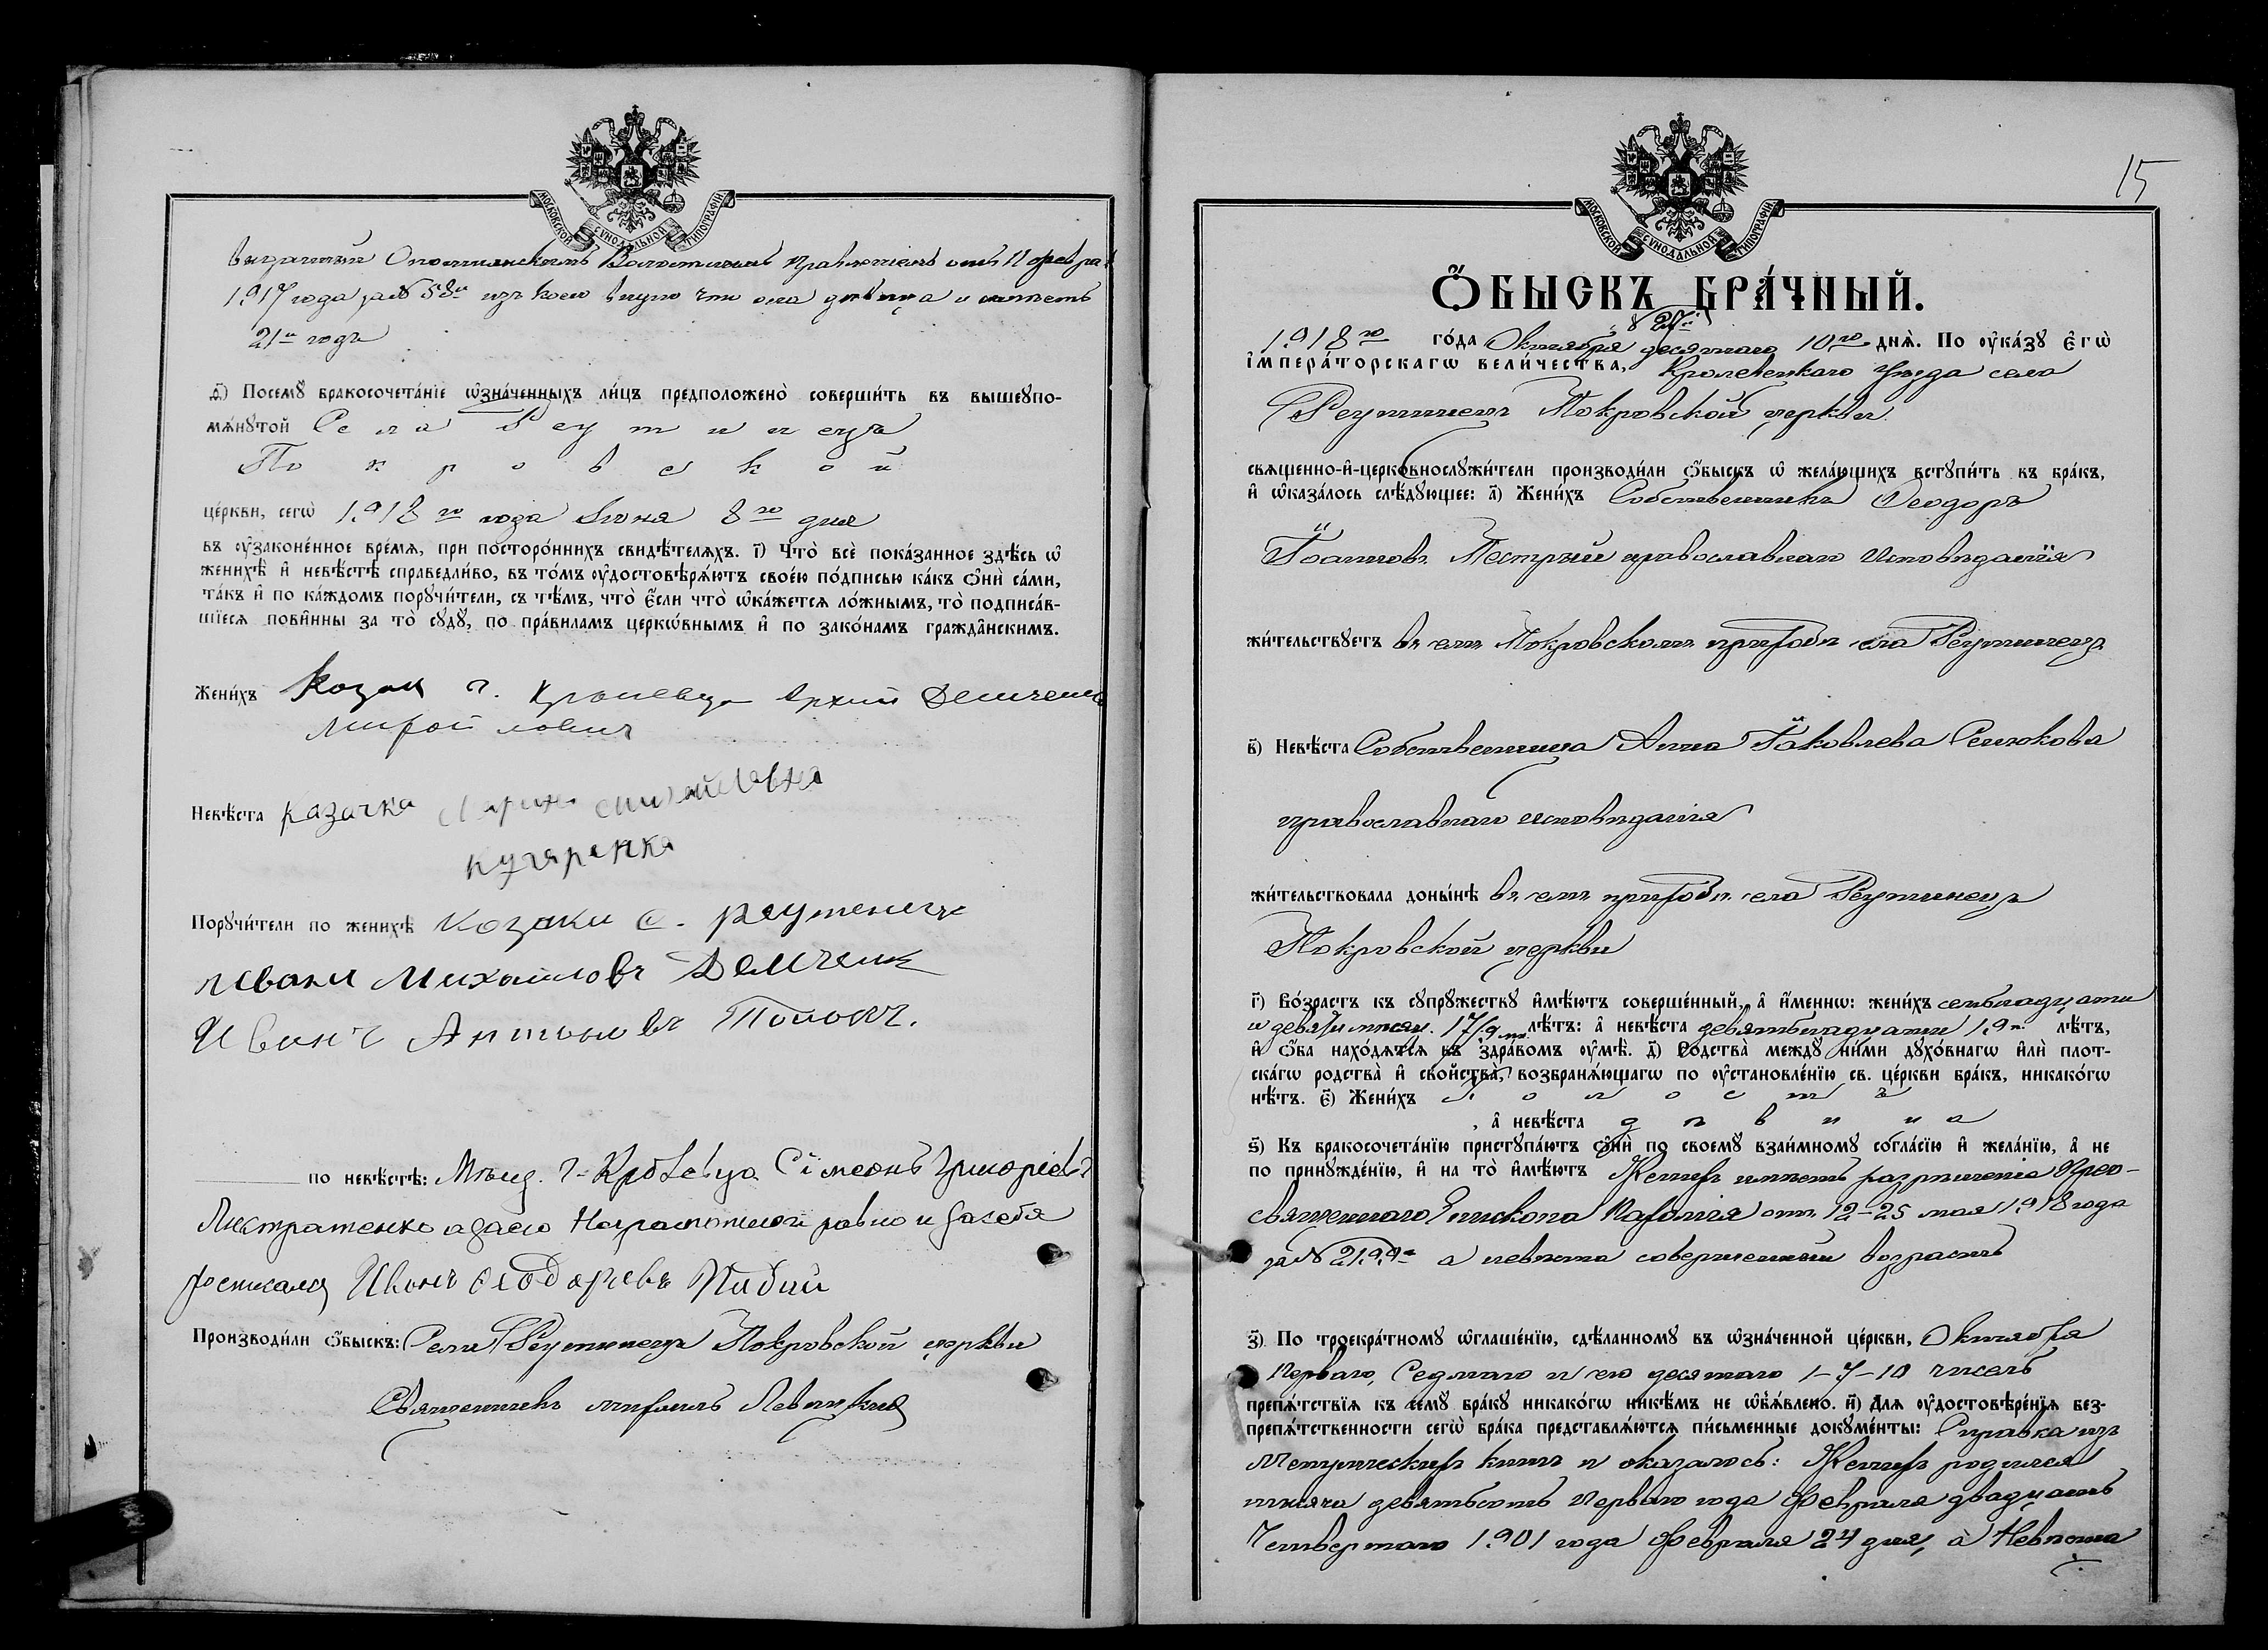 МОСКОВСКОЙ СѴНОДАЛЬНОЙ ТИПОГРАФІИ
Волостнымъ Правленіемъ отъ 11 февра
1917 года за № 58м изъ коего видно что она дѣвица и имѣетъ
21н годъ
д҃) Посемꙋ бракосочета́нїе ѡ҆зна́ченныхъ ли́цъ предположено̀ соверши́ть въ вышеꙋпо-
мѧ́нꙋтой Села Реутинецъ
Покровской
це́ркви, сегѡ̀ 1918го года Іюня 8го дня
въ ᲂу҆законе́нное вре́мѧ, при посторо́ннихъ свидѣ́телѧхъ. і҃) Что̀ всѐ пока́занное здѣ́сь ѡ҆
женихѣ̀ и҆ невѣ́стѣ справедли́во, въ то́мъ ᲂу҆достовѣрѧ́ютъ свое́ю по́дписью ка́къ ѻ҆нѝ са́ми,
та́къ и҆ по ка́ждомъ порꙋчи́тели, съ тѣ́мъ, что̀ є҆́сли что̀ ѡ҆ка́жетсѧ ло́жнымъ, то̀ подписа́в-
шїесѧ пови́нны за то̀ сꙋдꙋ̀, по пра́виламъ церкѡ́внымъ и҆ по зако́намъ гражда́нскимъ.
Жени́хъ Козак г. Кролевца
Невѣ́ста Казачка
Порꙋчи́тели по женихѣ̀ Козаки с. Реутенецъ
Иванъ Михайловъ Демченк
Иванъ Антоновъ
по невѣ́стѣ: Мѣщ. г. Кролевца Сімеонъ Григоріевъ
Листратенко а за его Неграмотного равно и за себя
росписался Иванъ Феодоровъ
Производи́ли ѻ҆́быскъ: Села Реутинецъ Покровской церкви
Священникъ Михаилъ Левицкій
15
МОСКОВСКОЙ СѴНОДАЛЬНОЙ ТИПОГРАФІИ
Ѻ҆́БЫСКЪ БРА́ЧНЫЙ.
1918го го́да Октября десятаго 10го днѧ̀. По ᲂу҆ка́зꙋ Є҆гѡ̀
І҆мпера́торскагѡ вели́чества, Кролевецкаго Уѣзда села
Реутинецъ Покровской церкви
свѧщенно-и҆-церковнослꙋжи́тели производи́ли ѻ҆́быскъ ѡ҆ жела́ющихъ встꙋпи́ть въ бра́къ,
и҆ ѡ҆каза́лось слѣ́дꙋющее: а҃) Жени́хъ Собственникъ Ѳеодоръ
Іоанновъ Пестрый православнаго исповѣданія
жи́тельствꙋетъ въ семъ Покровскомъ приходѣ села Реутинецъ
в҃) Невѣ́ста Собственница Анна Іаковлева Сенюкова
православнаго исповѣданія
жи́тельствовала доны́нѣ въ семъ приходѣ села Реутинецъ
Покровской церкви
г҃) Во́зрастъ къ сꙋпрꙋ́жествꙋ и҆мѣ́ютъ соверше́нный, а҆ и҆́менно: жени́хъ семьнадцати
и девяти мѣсяц. 17/9 м. лѣ́тъ: а҆ невѣ́ста девятьнадцати 19ть лѣ́тъ,
и҆ ѻ҆́ба нахо́дѧтсѧ въ здра́вомъ ᲂу҆мѣ̀. д҃) Родства̀ междꙋ̀ ни́ми дꙋхо́внагѡ и҆лѝ плот-
ска́гѡ родства̀ и҆ сво́йства̀, возбранѧ́ющагѡ по ᲂу҆становле́нїю св. це́ркви бра́къ, никако́гѡ
нѣ́тъ. є҃) Жени́хъ холостъ
, а҆ невѣ́ста дѣвица
ѕ҃) Къ бракосочета́нїю пристꙋпа́ютъ ѻ҆нѝ по своемꙋ̀ взаи́мномꙋ согла́сїю и҆ жела́нїю, а҆ не
по принꙋжде́нїю, и҆ на то̀ и҆мѣ́ютъ Женихъ имѣетъ разрѣшеніе Прео-
священнаго Епископа Пафомія отъ 12-25 мая 1918 года
за № 2199м а невѣста совершенный возрастъ
з҃) По троекра́тномꙋ ѡ҆глаше́нїю, сдѣ́ланномꙋ въ ѡ҆зна́ченной це́ркви, Октября
Перваго, Седмаго и сего десятаго 1-7-10 чиселъ
препѧ́тствїѧ къ семꙋ̀ бра́кꙋ никако́гѡ никѣ́мъ не ѡ҆б̾ѧ́влено. и҃) Длѧ ᲂу҆достовѣре́нїѧ без-
препѧ́тственности сегѡ̀ бра́ка представлѧ́ютсѧ пи́сьменные докꙋме́нты: Справка изъ
Метрическихъ книгъ и оказалось: Женихъ родился
тысяча девятьсотъ перваго года Февраля двадцать
Четвертаго 1901 года Февраля 24 дня, а Невѣста